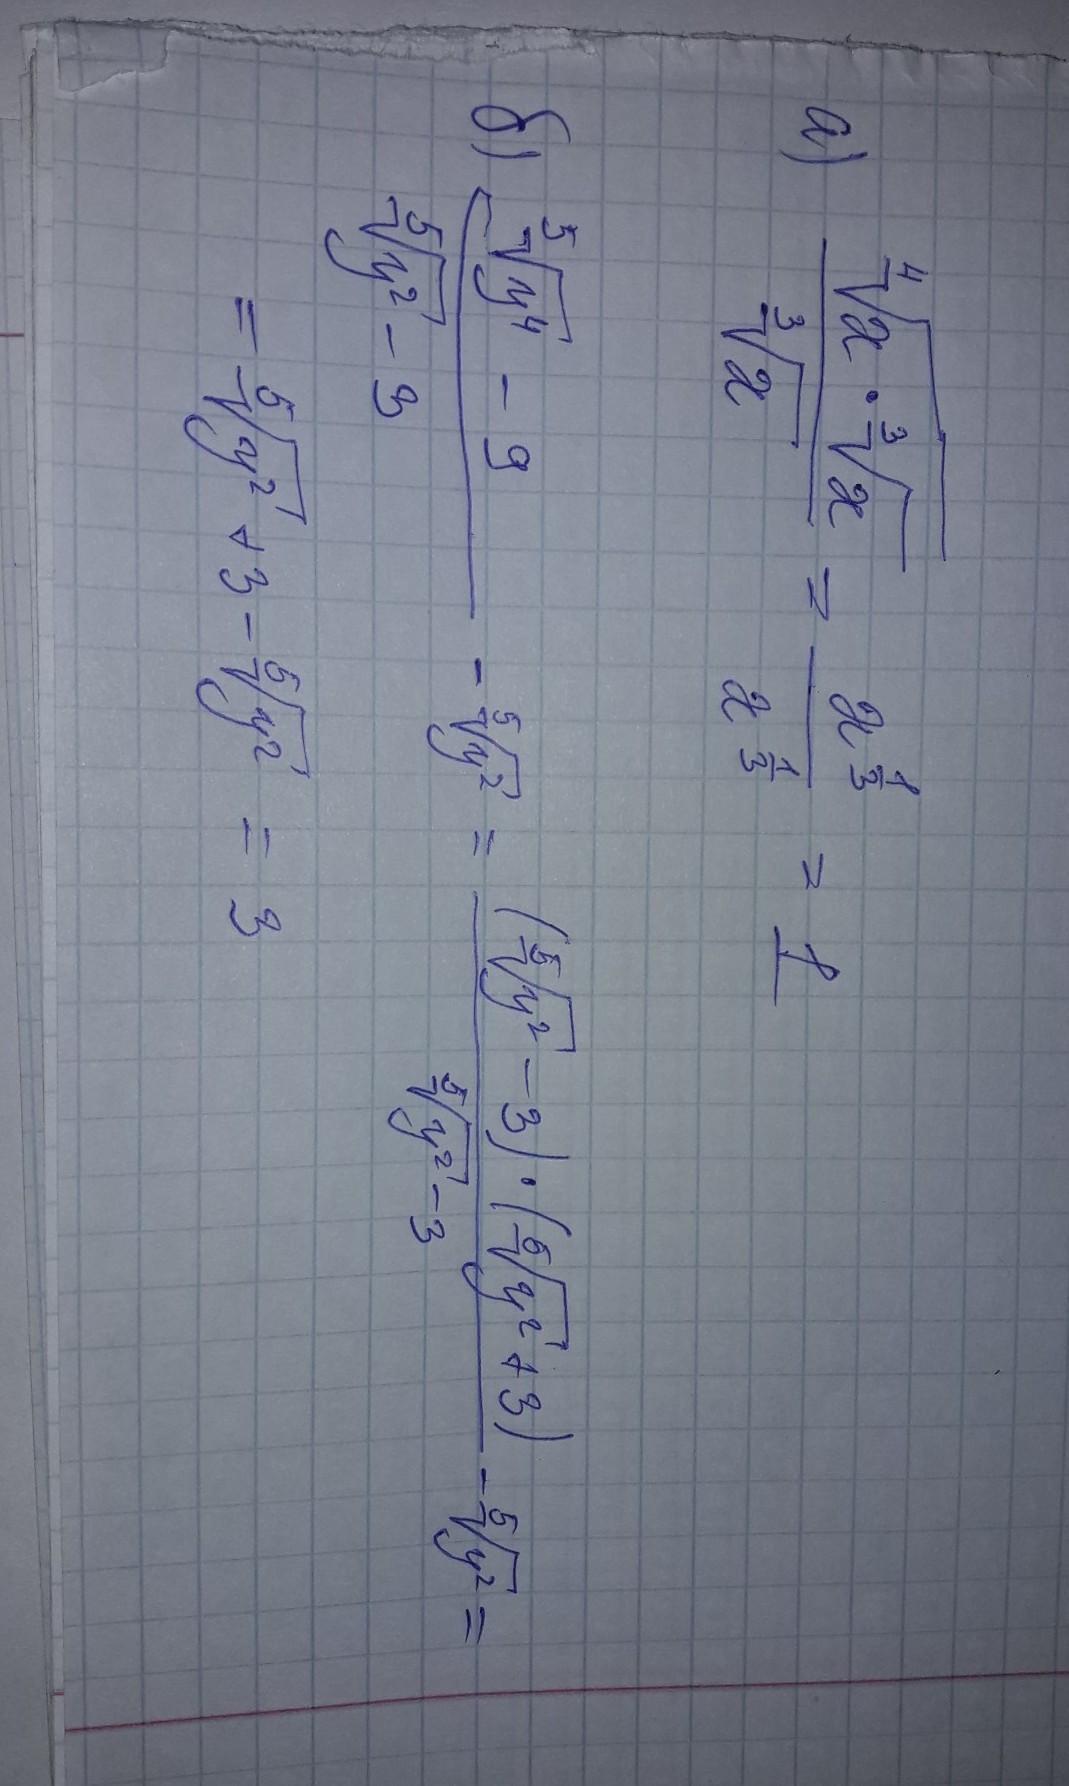 а) \frac{\sqrt[4]{x \cdot \sqrt[3]{x}}}{\sqrt[3]{x}} = \frac{x^{\frac{1}{3}}}{x^{\frac{1}{3}}} = 1
б) \frac{\sqrt[5]{y^4} - 9}{\sqrt[5]{y^2} - 3} - \sqrt[5]{y^2} = \frac{(\sqrt[5]{y^2} - 3) \cdot (\sqrt[5]{y^2} + 3)}{\sqrt[5]{y^2} - 3} - \sqrt[5]{y^2} =
= \sqrt[5]{y^2} + 3 - \sqrt[5]{y^2} = 3